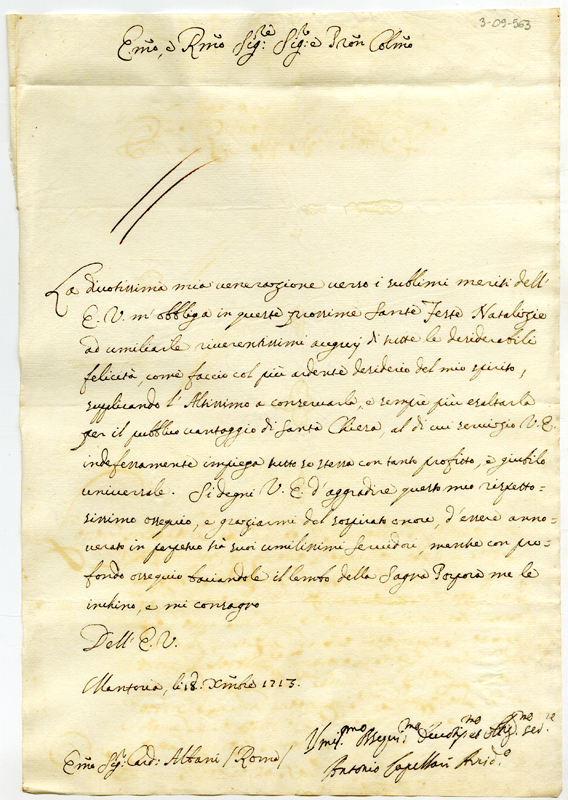 3-09-563
E.mo, e R.mo Sig:re Sig:r e P̃ron Colmo
La divotissima mia venerazione verso i sublimi meriti dell'
E. V. m'obbliga in queste prossime Sante Feste Natalizie
ad umiliarle riverentissimi augurj di tutte le desiderabili
felicità, come faccio col più ardente desiderio del mio spirito,
supplicando l'Altissimo a conservarla, e sempre più esaltarla
per il pubblico vantaggio di Santa Chiesa, al di cui servizio V. E.
indefessamente impiega tutto se stessa con tanto profitto, e giubilo
universale. Si degni V. E. d'aggradire questo mio rispetto=
sissimo ossequio, e graziarmi del sospirato onore, d'essere anno=
verato in perpetuo trà suoi umilissimi servidori, mentre con pro=
fondo ossequio baciandole il lembo della Sagra Porpora me le
inchino, e mi consagro
Dell' E. V.
Mantova, li 18. Xmbre 1713.
Umil.mo Ossequi.mo Devot.mo et Obg.mo Ser.re
Em̃o Sig:r Card: Albani / Roma /
Antonio